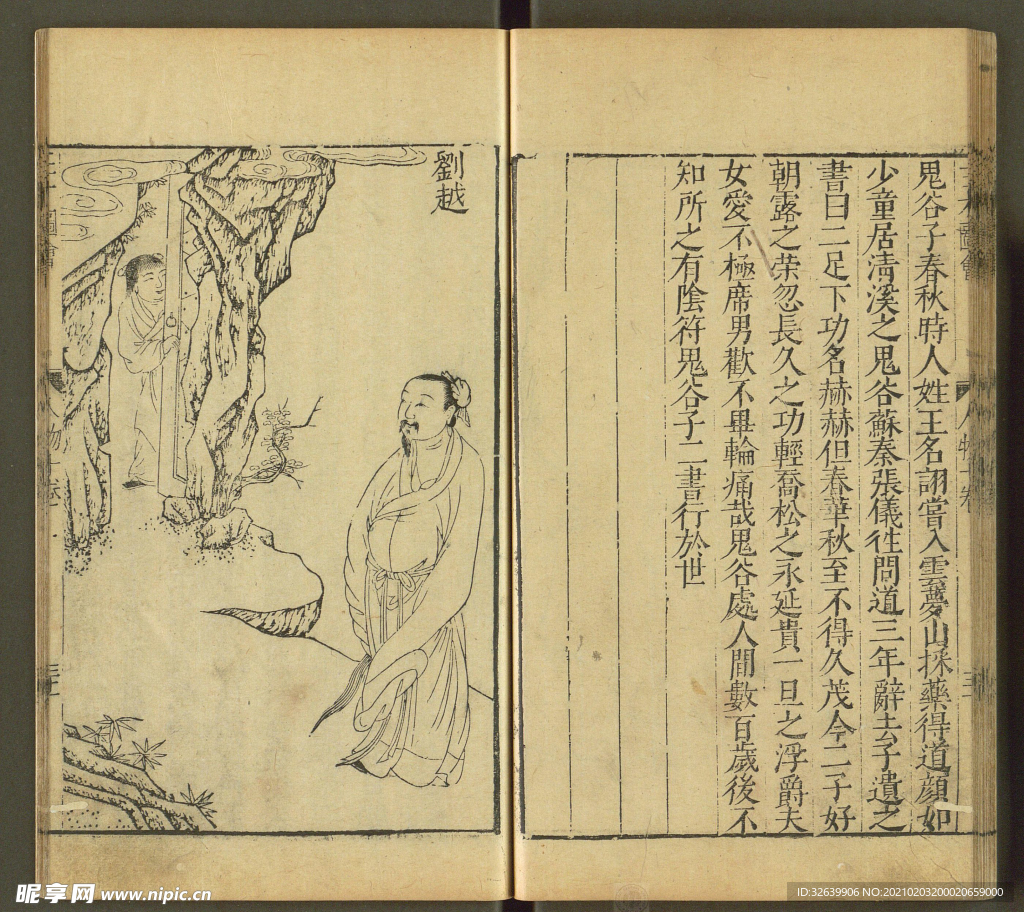 鬼谷子春秋時人姓王名詡嘗入雲夢山採藥得道顔如
少童居清溪之鬼谷蘇秦張儀徃問道三年辭去子遺之
書曰二足下功名赫赫但春華秋至不得久茂今二子好
朝露之荣忽長久之功輕喬松之永延貴一旦之浮爵夫
女愛不極席男歡不畢輪痛哉鬼谷處人間數百歲後不
知所之有陰符鬼谷子二書行於世
劉越
昵享网 www.nipic.cn
ID:32639906 NO:20210203200020659000